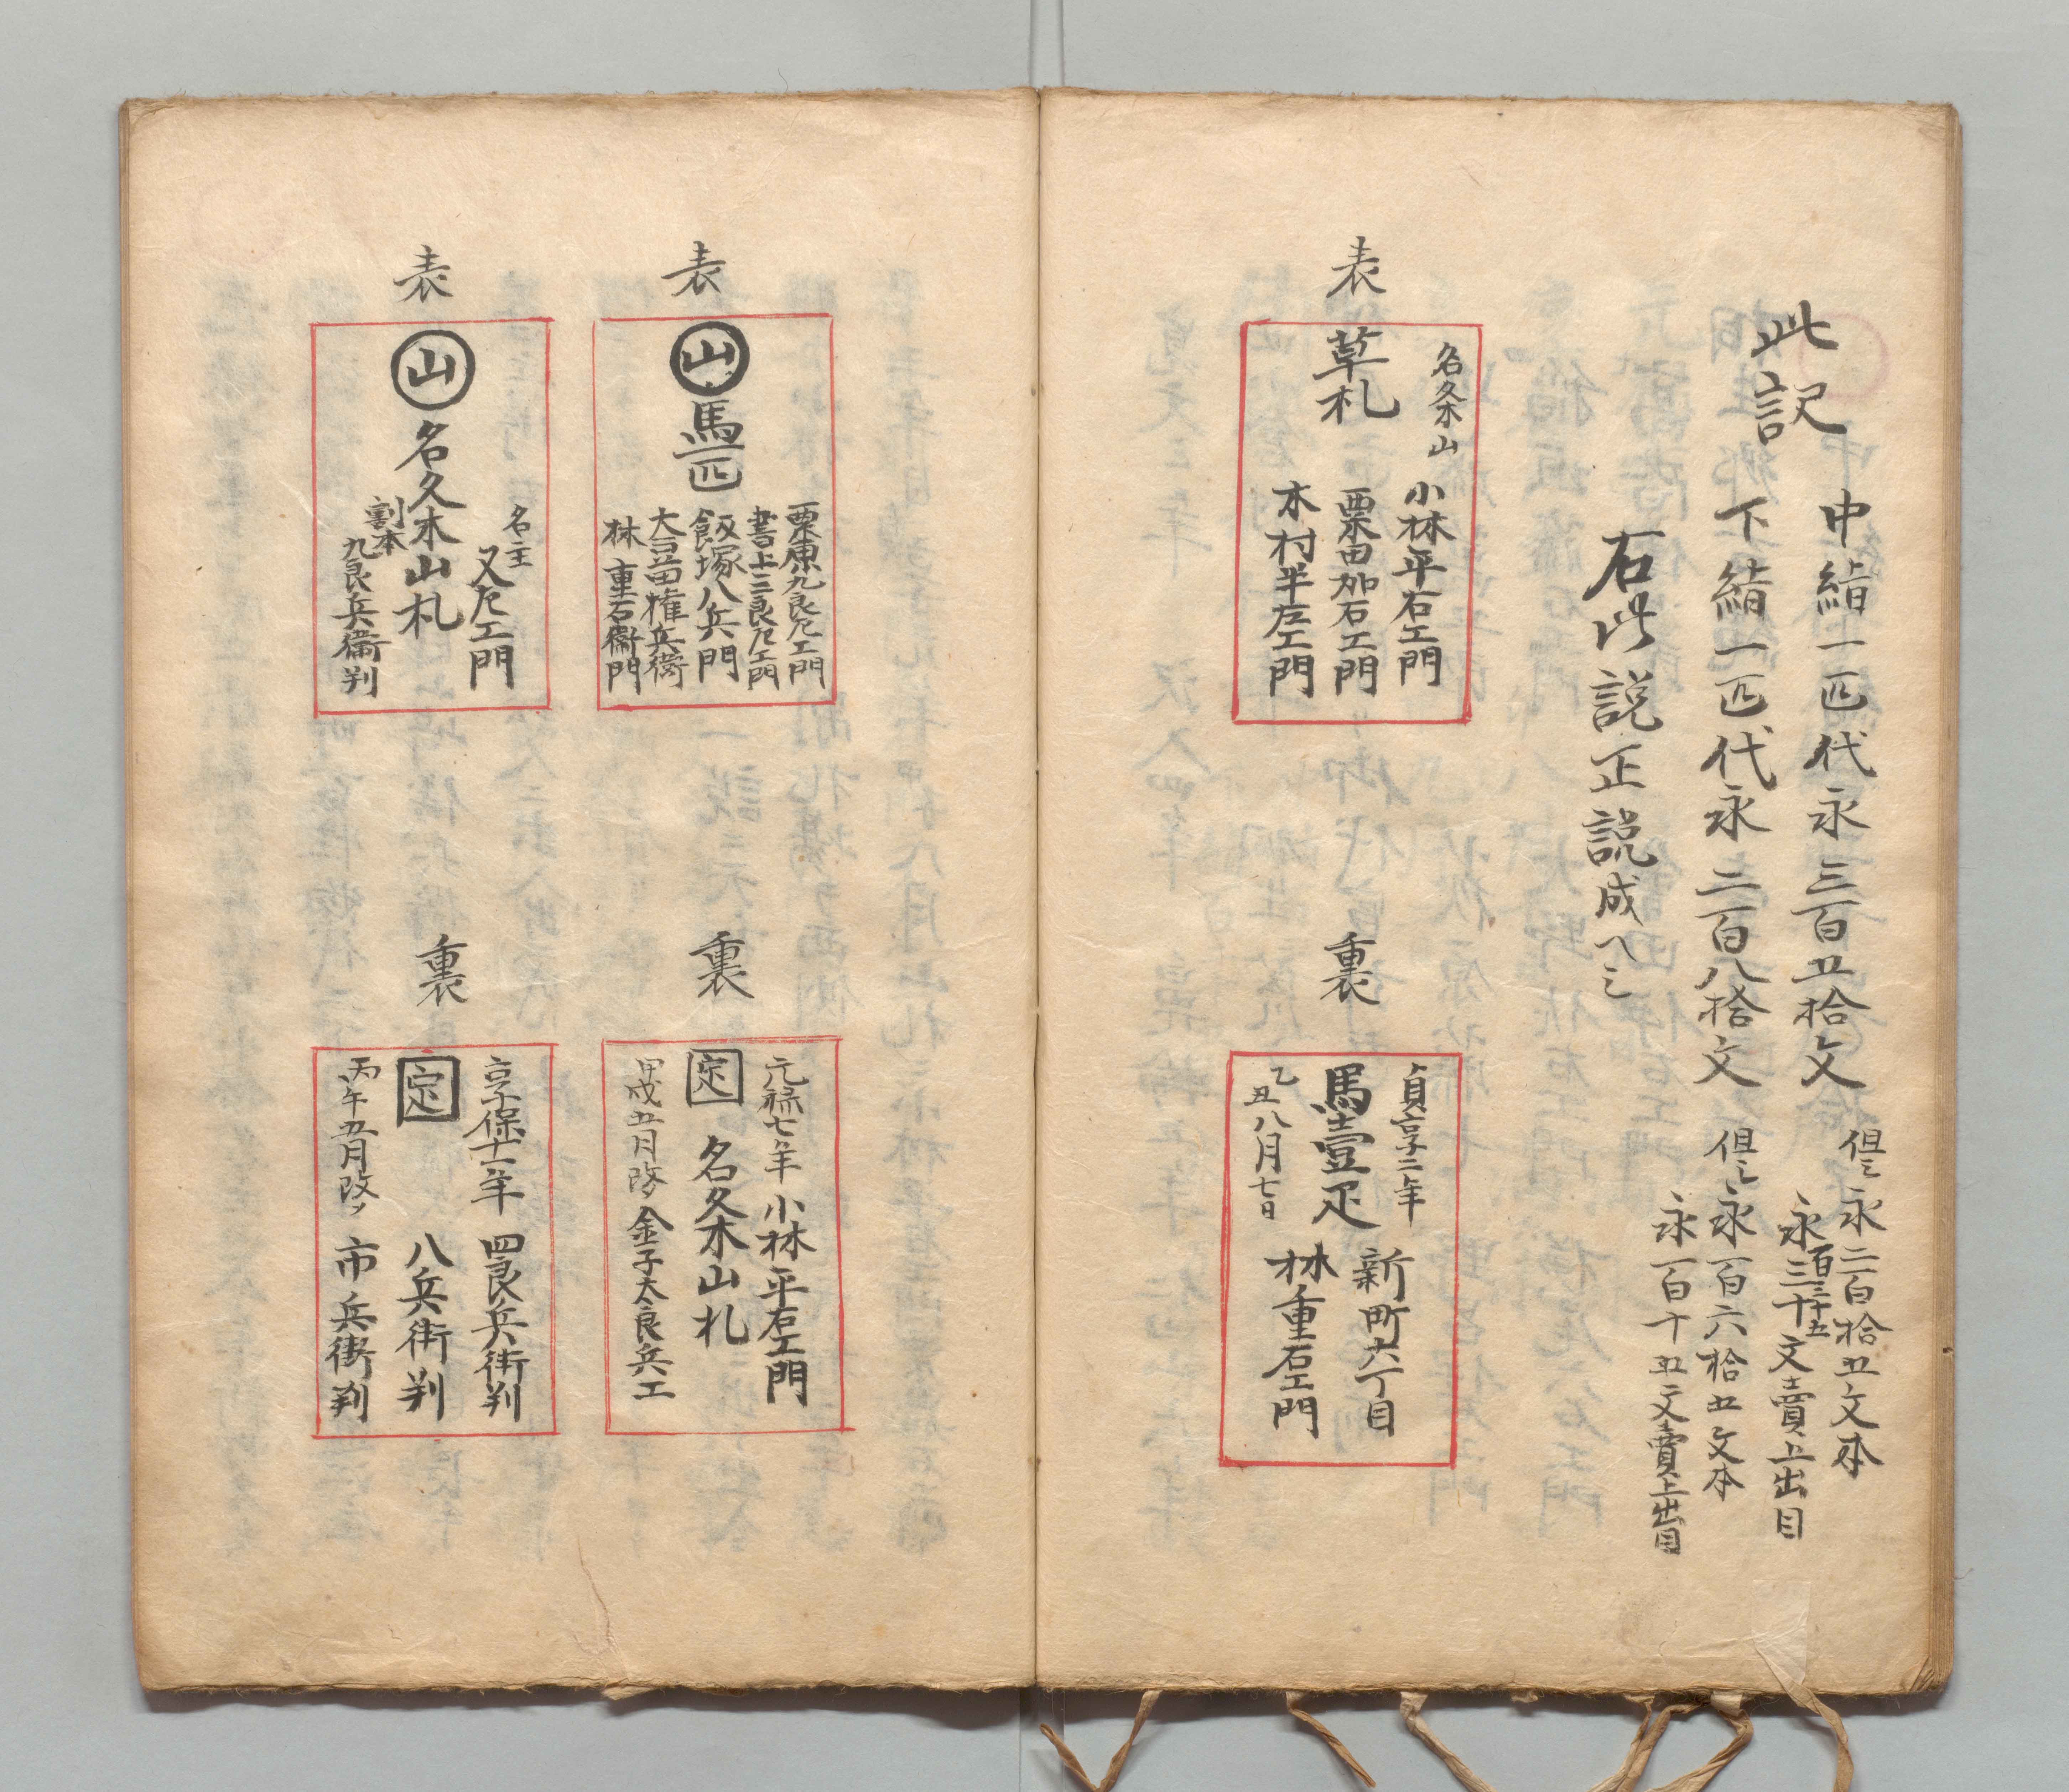 此記
中絹一匹代永三百五拾文
但シ永二百拾五文本
永百三十五文賣上出目
下絹一匹代永二百八拾文
但シ永一百六拾五文本
永一百十五文賣上出目
右此説正説成へシ
表
名久木山
草札
小林平右エ門
栗田加右エ門
木村半左エ門
裏
貞享二年
馬壹疋
乙丑八月七日
新町六丁目
林重右エ門
表
山
馬一匹
栗原九良左エ門
書上三良左エ門
飯塚八兵門
大豆苗権兵衛
林重右衛門
裏
元禄七年 小林平右エ門
定 名久木山札
甲戌五月改 金子太良兵エ
表
名主 又左エ門
山 名久木山札
割本 九良兵衛判
裏
享保十一年 四良兵衛判
定 八兵衛判
丙午五月改メ 市兵衛判